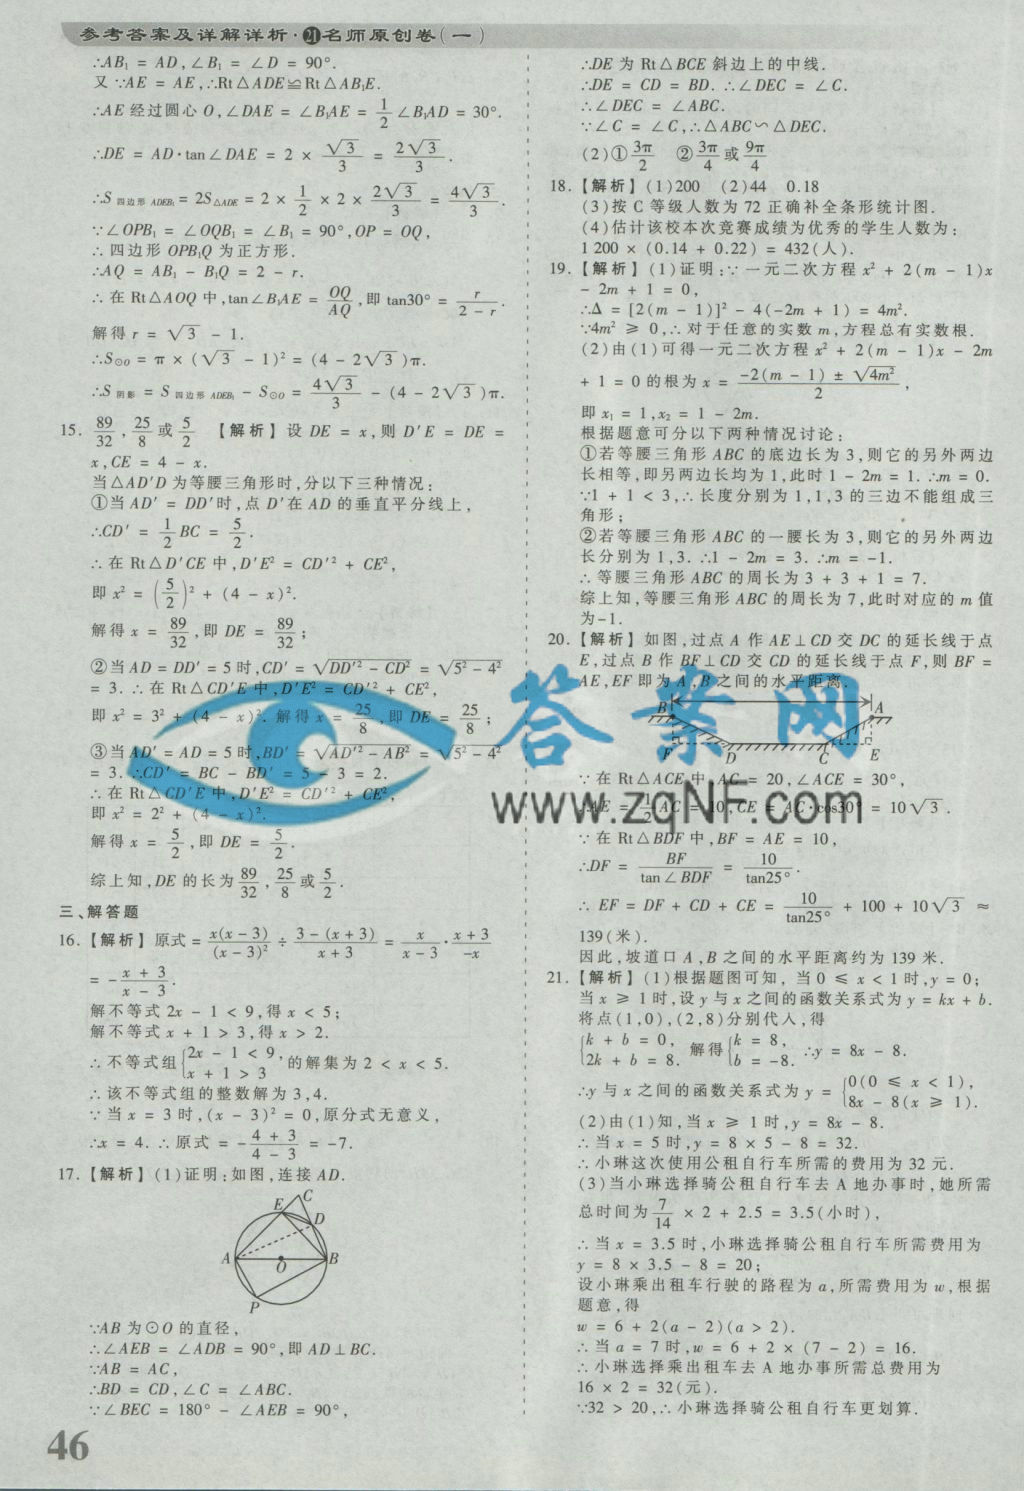 参考答案及详解详析·21名师原创卷(一)
∴AB₁ = AD,∠B₁ = ∠D = 90°.
又∵AE = AE,∴Rt△ADE≌Rt△AB₁E.
∴AE 经过圆心 O,∠DAE = ∠B₁AE = 1/2 ∠B₁AD = 30°.
∴DE = AD·tan∠DAE = 2 × √3/3 = 2√3/3.
∴S四边形ADEB₁ = 2S△ADE = 2 × 1/2 × 2 × 2√3/3 = 4√3/3.
∵∠OPB₁ = ∠OQB₁ = ∠B₁ = 90°,OP = OQ,
∴四边形 OPB₁Q 为正方形.
∴AQ = AB₁ - B₁Q = 2 - r.
∴在 Rt△AOQ 中,tan∠B₁AE = OQ/AQ,即 tan30° = r/(2 - r).
解得 r = √3 - 1.
∴S⊙O = π × (√3 - 1)² = (4 - 2√3)π.
∴S阴影 = S四边形ADEB₁ - S⊙O = 4√3/3 - (4 - 2√3)π.
15. 89/32,25/8或5/2 【解析】设 DE = x,则 D′E = DE =
x,CE = 4 - x.
当△AD′D 为等腰三角形时,分以下三种情况:
①当 AD′ = DD′时,点 D′在 AD 的垂直平分线上,
∴CD′ = 1/2 BC = 5/2.
∴在 Rt△D′CE 中,D′E² = CD′² + CE²,
即 x² = (5/2)² + (4 - x)².
解得 x = 89/32,即 DE = 89/32;
②当 AD = DD′ = 5 时,CD′ = √(DD′² - CD²) = √(5² - 4²)
= 3. ∴在 Rt△CD′E 中,D′E² = CD′² + CE²,
即 x² = 3² + (4 - x)². 解得 x = 25/8,即 DE = 25/8;
③当 AD′ = AD = 5 时,BD′ = √(AD′² - AB²) = √(5² - 4²)
= 3. ∴CD′ = BC - BD′ = 5 - 3 = 2.
∴在 Rt△CD′E 中,D′E² = CD′² + CE²,
即 x² = 2² + (4 - x)².
解得 x = 5/2,即 DE = 5/2.
综上知,DE 的长为89/32,25/8或5/2.
三、解答题
16.【解析】原式 = x(x - 3)/(x - 3)² ÷ (3 - (x + 3))/(x + 3) = x/(x - 3)·(x + 3)/(-x)
= -(x + 3)/(x - 3).
解不等式 2x - 1 < 9,得 x < 5;
解不等式 x + 1 > 3,得 x > 2.
∴不等式组{2x - 1 < 9, x + 1 > 3 的解集为 2 < x < 5.
∴该不等式组的整数解为 3,4.
∵当 x = 3 时,(x - 3)² = 0,原分式无意义,
∴x = 4. ∴原式 = -(4 + 3)/(4 - 3) = -7.
17.【解析】(1)证明:如图,连接 AD.
C
E
D
A
O
B
P
∵AB 为⊙O 的直径,
∴∠AEB = ∠ADB = 90°,即 AD⊥BC.
∵AB = AC,
∴BD = CD,∠C = ∠ABC.
∵∠BEC = 180° - ∠AEB = 90°,
46
∴DE 为 Rt△BCE 斜边上的中线.
∴DE = CD = BD. ∴∠DEC = ∠C.
∴∠DEC = ∠ABC.
∵∠C = ∠C,∴△ABC∽△DEC.
(2)①3π/2 ②3π/4或9π/4
18.【解析】(1)200 (2)44 0.18
(3)按 C 等级人数为 72 正确补全条形统计图.
(4)估计该校本次竞赛成绩为优秀的学生人数为:
1 200 × (0.14 + 0.22) = 432(人).
19.【解析】(1)证明:∵一元二次方程 x² + 2(m - 1)x
- 2m + 1 = 0,
∴Δ = [2(m - 1)]² - 4(-2m + 1) = 4m².
∵4m² ≥ 0,∴对于任意的实数 m,方程总有实数根.
(2)由(1)可得一元二次方程 x² + 2(m - 1)x - 2m
+ 1 = 0 的根为 x = (-2(m - 1) ± √(4m²))/2,
即 x₁ = 1,x₂ = 1 - 2m.
根据题意可分以下两种情况讨论:
①若等腰三角形 ABC 的底边长为 3,则它的另外两边
长相等,即另两边长均为 1,此时 1 - 2m = 1. ∴m = 0.
∵1 + 1 < 3,∴长度分别为 1,1,3 的三边不能组成三
角形;
②若等腰三角形 ABC 的一腰长为 3,则它的另外两边
长分别为 1,3. ∴1 - 2m = 3. ∴m = -1.
∴等腰三角形 ABC 的周长为 3 + 3 + 1 = 7.
综上知,等腰三角形 ABC 的周长为 7,此时对应的 m 值
为-1.
20.【解析】如图,过点 A 作 AE⊥CD 交 DC 的延长线于点
E,过点 B 作 BF⊥CD 交 CD 的延长线于点 F,则 BF =
AE,EF 即为 A,B 之间的水平距离.
B
A
F
D
C
E
∵在 Rt△ACE 中,AC = 20,∠ACE = 30°,
∴AE = 1/2 AC = 10,CE = AC·cos30° = 10√3.
∵在 Rt△BDF 中,BF = AE = 10,
∴DF = BF/tan∠BDF = 10/tan25°.
∴EF = DF + CD + CE = 10/tan25° + 100 + 10√3 ≈
139(米).
因此,坡道口 A,B 之间的水平距离约为 139 米.
21.【解析】(1)根据题图可知,当 0 ≤ x < 1 时,y = 0;
当 x ≥ 1 时,设 y 与 x 之间的函数关系式为 y = kx + b.
将点(1,0),(2,8)分别代人,得
{k + b = 0, 2k + b = 8. 解得{k = 8, b = -8. ∴y = 8x - 8.
∴y 与 x 之间的函数关系式为 y = {0(0 ≤ x < 1), 8x - 8(x ≥ 1).
(2)由(1)知,当 x ≥ 1 时,y = 8x - 8.
∴当 x = 5 时,y = 8 × 5 - 8 = 32.
∴小琳这次使用公租自行车所需的费用为 32 元.
(3)当小琳选择骑公租自行车去 A 地办事时,她所需
总时间为7/14 × 2 + 2.5 = 3.5(小时),
∴当 x = 3.5 时,小琳选择骑公租自行车所需费用为
y = 8 × 3.5 - 8 = 20;
设小琳乘出租车行驶的路程为 a,所需费用为 w,根据
题意,得
w = 6 + 2(a - 2)(a > 2).
∴当 a = 7 时,w = 6 + 2 × (7 - 2) = 16.
∴小琳选择乘出租车去 A 地办事所需总费用为
16 × 2 = 32(元).
∵32 > 20,∴小琳选择骑公租自行车更划算.
答案网
www.zqNF.com